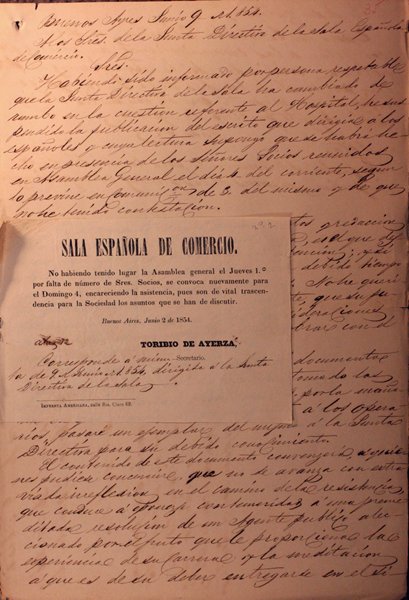 Buenos Ayres Junio 9 de 1854.
A los Sres. de la Junta Directiva de la Sala Española
de Comercio.
Sres.
Habiendo sido informado por persona respetable
que la Junta Directiva de la Sala ha cambiado de
rumbo en la cuestion referente al Hospital, he sus
pendido la publicacion del escrito que dirigia a los
Españoles y cuya lectura supongo que se habrá he
cho en presencia de los Señores Socios reunidos
en Asamblea General el dia 4 del corriente, segun
lo previne en comunicon de 3 del mismo y de que
no he tenido contestacion.
nº 2
SALA ESPAÑOLA DE COMERCIO.
No habiendo tenido lugar la Asamblea general el Jueves 1.º
por falta de número de Sres. Socios, se convoca nuevamente para
el Domingo 4, encareciendo la asistencia, pues son de vital trascen-
dencia para la Sociedad los asuntos que se han de discutir.
Buenos Aires, Junio 2 de 1854.
TORIBIO DE AYERZA,
Secretario.
Corresponde á mi
ta de 9 de Junio de 1854, dirigida a la Junta
Directiva de la Sala
IMPRENTA AMERICANA, calle Sta. Clara 62.
gradacion
debido tiempo
No be queri
documentos
por la maña
á los opera
rios, pasaré un ejemplar del mismo á la Junta
Directiva para su debido conocimiento.
El contenido de este documento convencerá a quie
nes pudiera concernir, que no se avanza con estra
viada irreflexion en el camino de la resistencia
que conduce a oponerse con temeridad a una pre me
ditada resolucion de un Agente publico alec
cionado por el fruto que le proporciona la
esperiencia de su carrera y la meditacion
a que es de su deber entregarse en el si